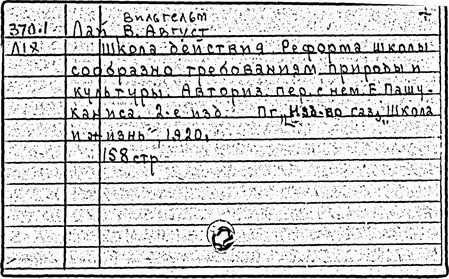 Вильгельм
370.1 Лай В. Август
Л18 Школа действия. Реформа школы
сообразно требованиям природы и
культуры. Авториз. пер. с нем. Е. Пашу-
каниса. 2-е изд. Пг., Изд-во газ. „Школа
и жизнь", 1920,
158 стр.